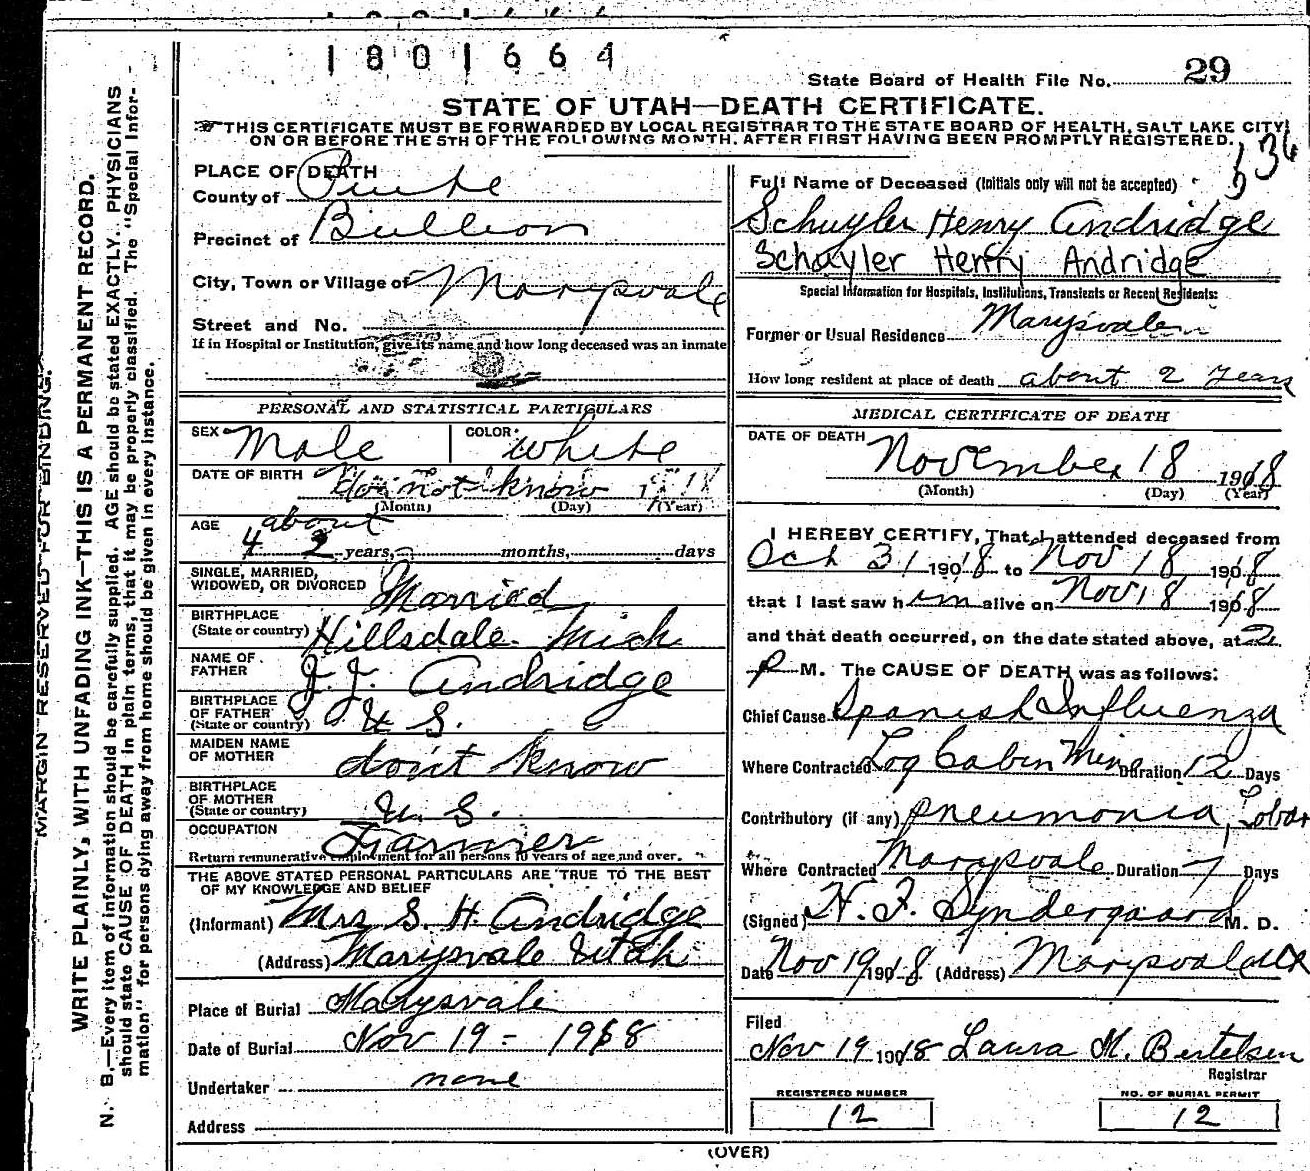 1801664
State Board of Health File No. 29
STATE OF UTAH—DEATH CERTIFICATE.
THIS CERTIFICATE MUST BE FORWARDED BY LOCAL REGISTRAR TO THE STATE BOARD OF HEALTH, SALT LAKE CITY,
ON OR BEFORE THE 5TH OF THE FOLLOWING MONTH, AFTER FIRST HAVING BEEN PROMPTLY REGISTERED.
MARGIN RESERVED FOR BINDING.
WRITE PLAINLY, WITH UNFADING INK—THIS IS A PERMANENT RECORD.
N. B.—Every item of information should be carefully supplied. AGE should be stated EXACTLY. PHYSICIANS
should state CAUSE OF DEATH in plain terms, that it may be properly classified. The "Special Infor-
mation" for persons dying away from home should be given in every instance.
PLACE OF DEATH
County of Piute
Precinct of Bullion
City, Town or Village of Marysvale
Street and No.
If in Hospital or Institution, give its name and how long deceased was an inmate
PERSONAL AND STATISTICAL PARTICULARS
SEX Male COLOR white
DATE OF BIRTH do not know
(Month) (Day) (Year)
AGE about
42 years, months, days
SINGLE, MARRIED,
WIDOWED, OR DIVORCED Married
BIRTHPLACE
(State or country) Hillsdale Mich
NAME OF
FATHER J. J. Andridge
BIRTHPLACE
OF FATHER
(State or country) U. S.
MAIDEN NAME
OF MOTHER don't know
BIRTHPLACE
OF MOTHER
(State or country) U. S.
OCCUPATION Farmer
Return remunerative employment for all persons 10 years of age and over.
THE ABOVE STATED PERSONAL PARTICULARS ARE TRUE TO THE BEST
OF MY KNOWLEDGE AND BELIEF
(Informant) Mrs S. H. Andridge
(Address) Marysvale Utah
Place of Burial Marysvale
Date of Burial Nov 19 - 1918
Undertaker none
Address
Full Name of Deceased (Initials only will not be accepted)
Schuyler Henry Andridge
Schuyler Henry Andridge
Special Information for Hospitals, Institutions, Transients or Recent Residents:
Former or Usual Residence Marysvale
How long resident at place of death about 2 years
MEDICAL CERTIFICATE OF DEATH
DATE OF DEATH November 18 1918
(Month) (Day) (Year)
I HEREBY CERTIFY, That I attended deceased from
Oct 31 1918 to Nov 18 1918
that I last saw him alive on Nov 18 1918
and that death occurred, on the date stated above, at 2
P M. The CAUSE OF DEATH was as follows:
Chief Cause Spanish Influenza
Where Contracted Log Cabin Mine Duration 12 Days
Contributory (if any) pneumonia, Lobar
Where Contracted Marysvale Duration 7 Days
(Signed) H. F. Syndergaard M. D.
Date Nov 19 1918 (Address) Marysvale Ut
Filed
Nov 19 1918 Laura M. Bertelsen
Registrar
REGISTERED NUMBER
12
NO. OF BURIAL PERMIT
12
(OVER)